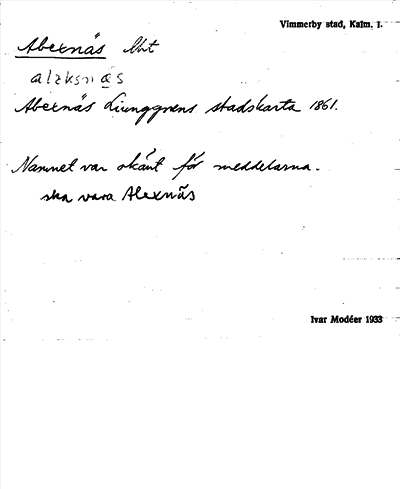 Vimmerby stad, Kalm. l.
Abernäs lht
alɛksnäs
Abernäs Ljunggrens stadskarta 1861.
Namnet var okänt för meddelarna.
ska vara Alexnäs
Ivar Modéer 1933